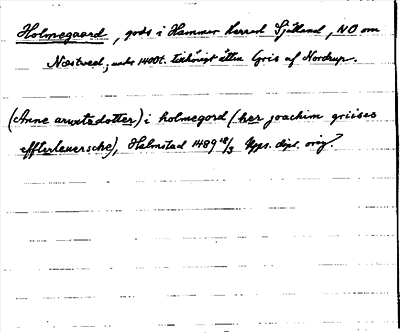 Holmegaard, gods i Hammer herred Sjælland, NO om
Næstved; under 1400t. tillhörigt ätten Gris af Nordrup.
(Anne arwitzdotter) i holmegord (her joachim griises
efflerleuersche), Halmstad 1489 18/3 Upps. dipl. orig.